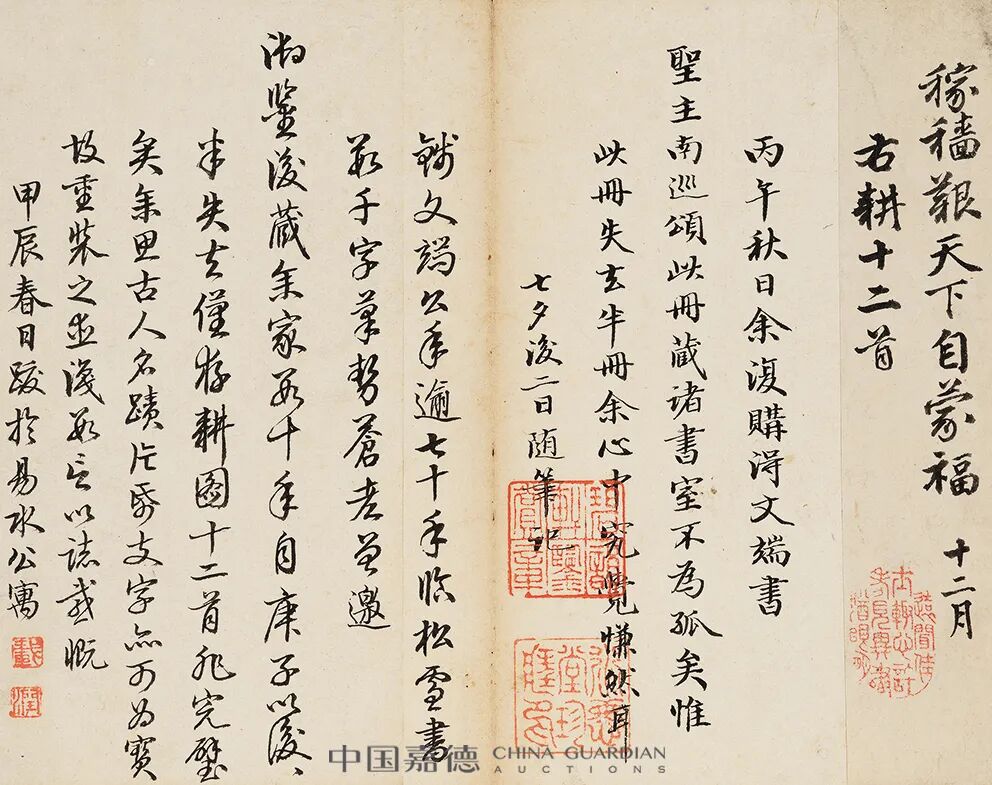 稼穡艱天下自蒙福 十二月
右耕十二首
丙午秋日余復購得文端書
聖主南巡頌此冊藏諸書室不為孤矣惟
此冊失去半冊余心中究覺慊然耳
七夕後二日随筆記
錢文端公年逾七十手臨松雪書
数千字筆勢蒼老曾邀
御鑒後藏余家数十年自庚子以後
半失去僅存耕圖十二首非完璧
矣余思古人名蹟片紙支字亦可為寶
故重装之並淺数言以誌感慨
甲辰春日跋於易水公寓
中国嘉德 CHINA GUARDIAN
AUCTIONS